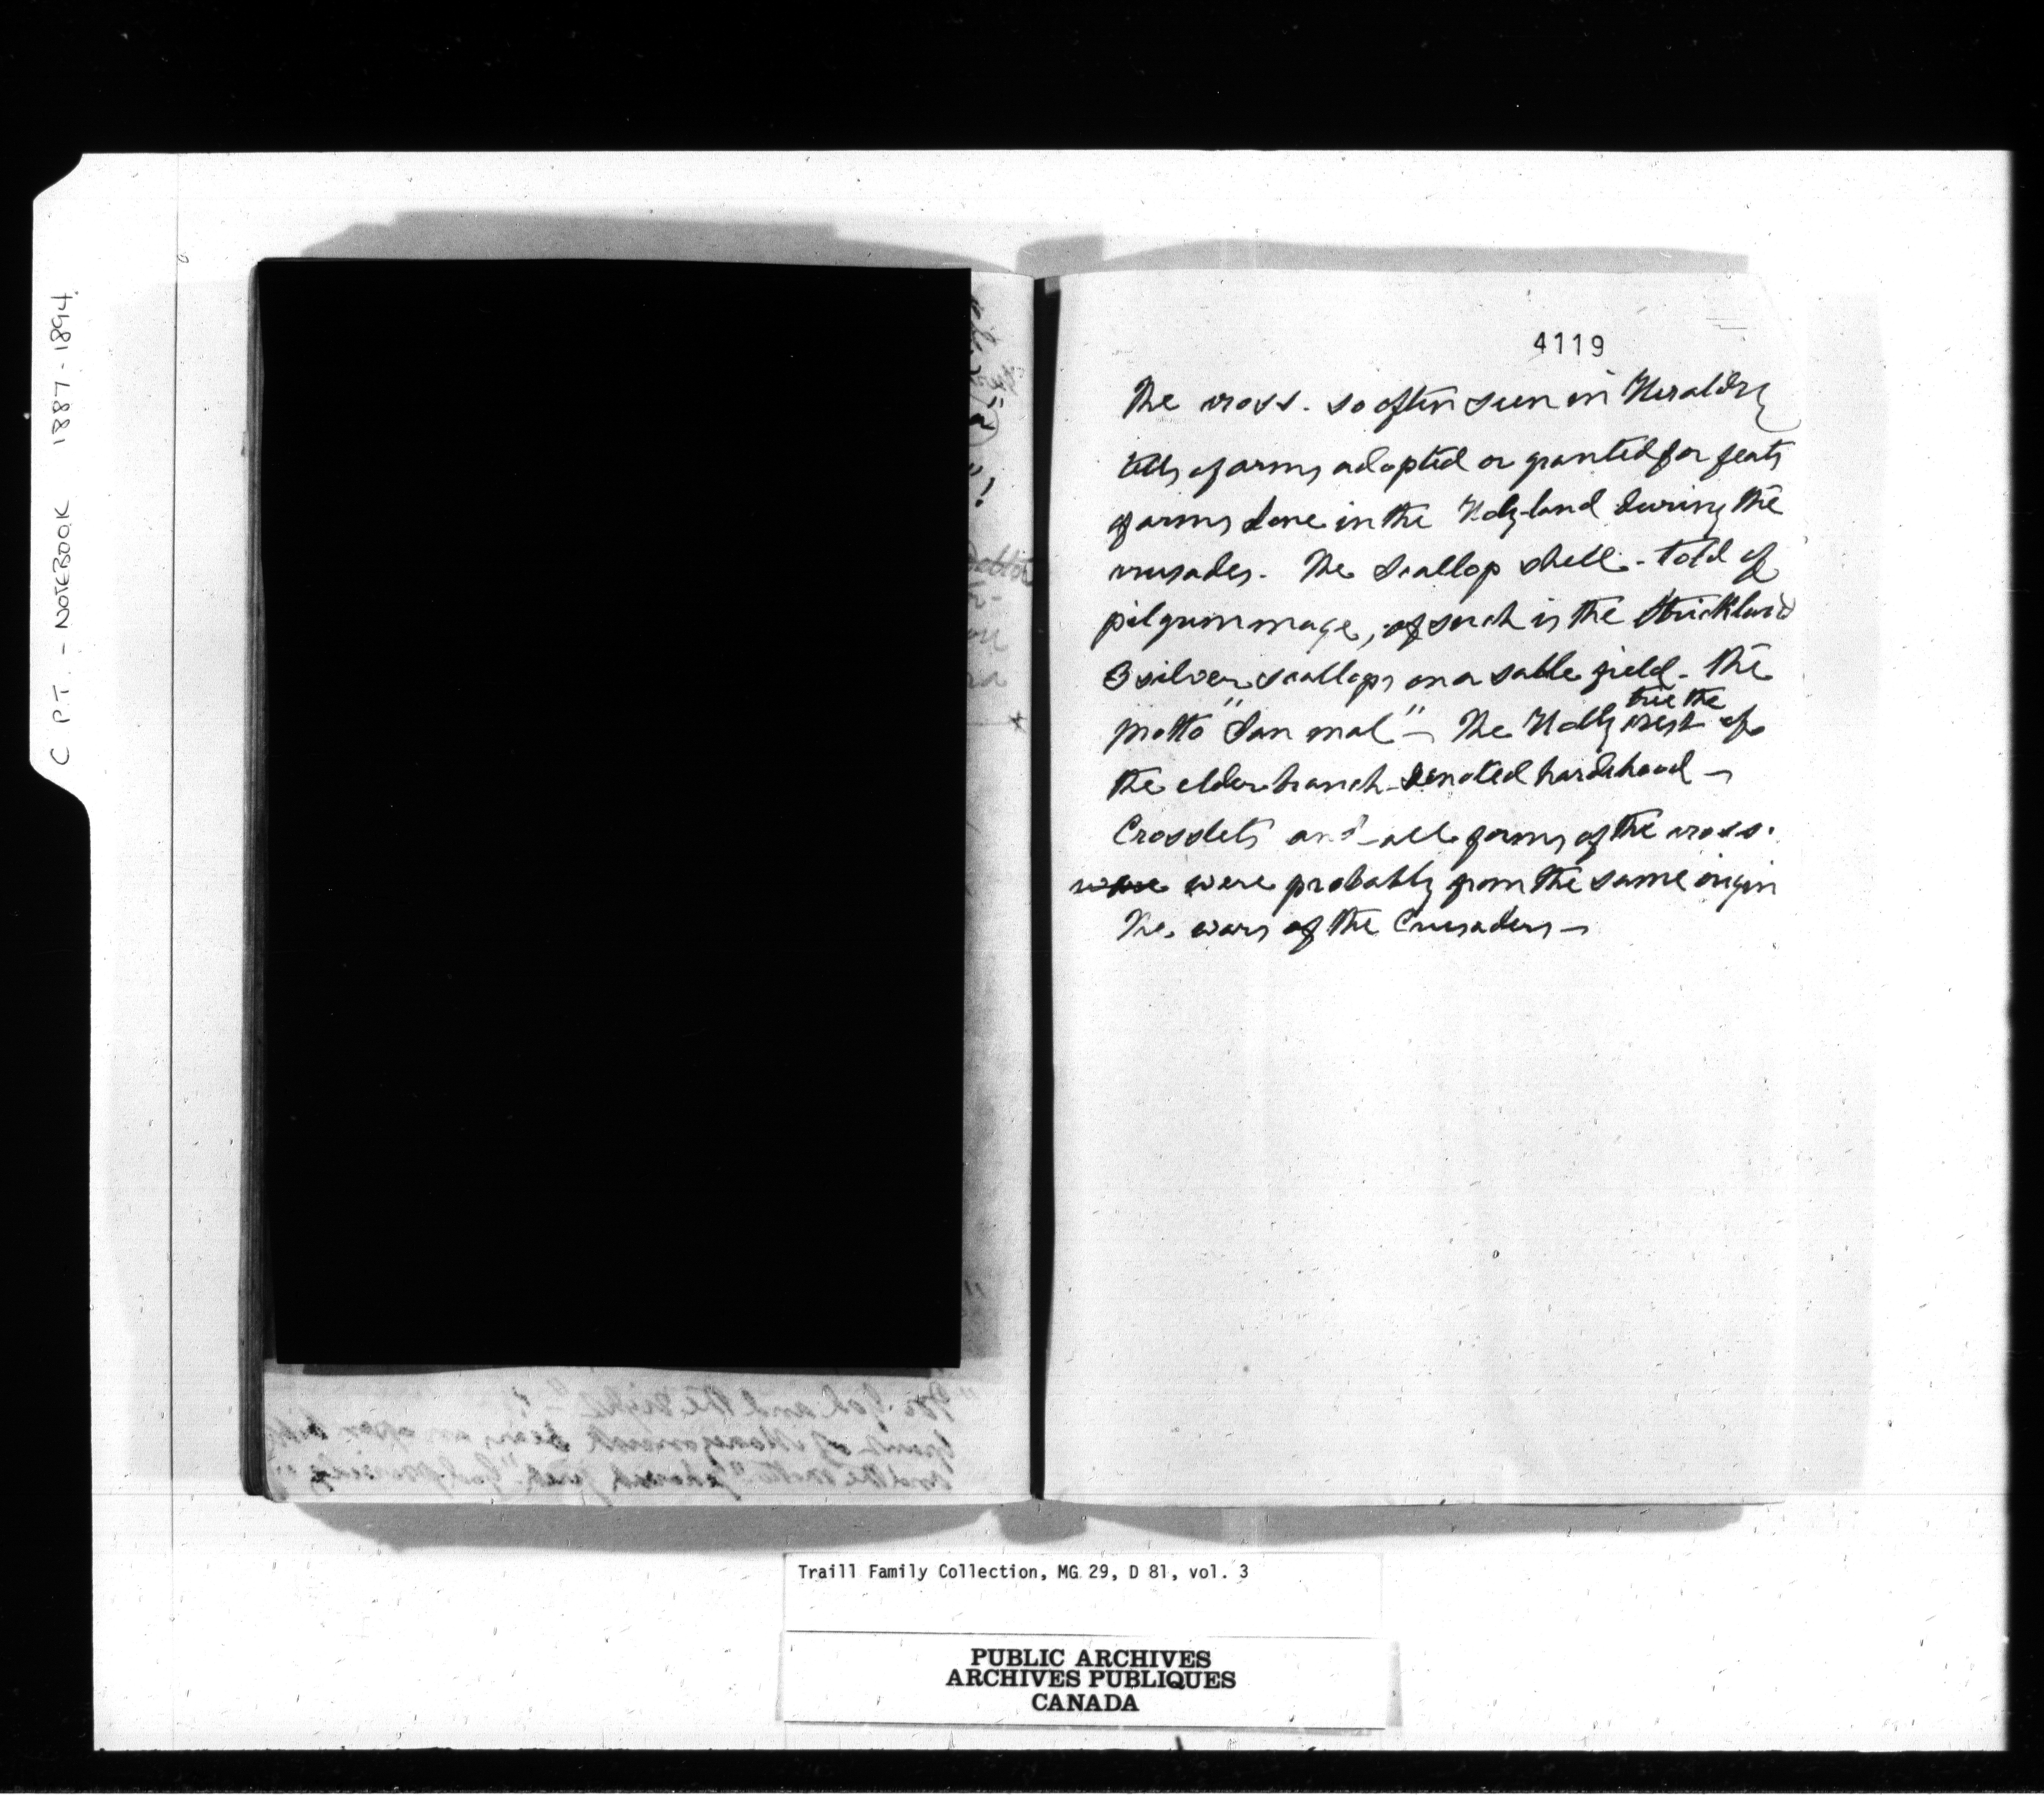 C P.T. - NOTEBOOK 1887-1894.
4119
The cross. so often seen in Heraldry
tells of arms adopted or granted for feats
of arms done in the Holy-land during the
crusades. The Scallop shell - told of
pilgrimmage, of such is the Strickland
3 silver scallops on a sable field - the
motto "San mal" - The Holly tree the crest of
the elder branch - denoted hardihood -
Crosslets and all forms of the cross.
were probably from the same origin
The wars of the Crusaders -
"For God and the right"
and the motto
Traill Family Collection, MG 29, D 81, vol. 3
PUBLIC ARCHIVES
ARCHIVES PUBLIQUES
CANADA